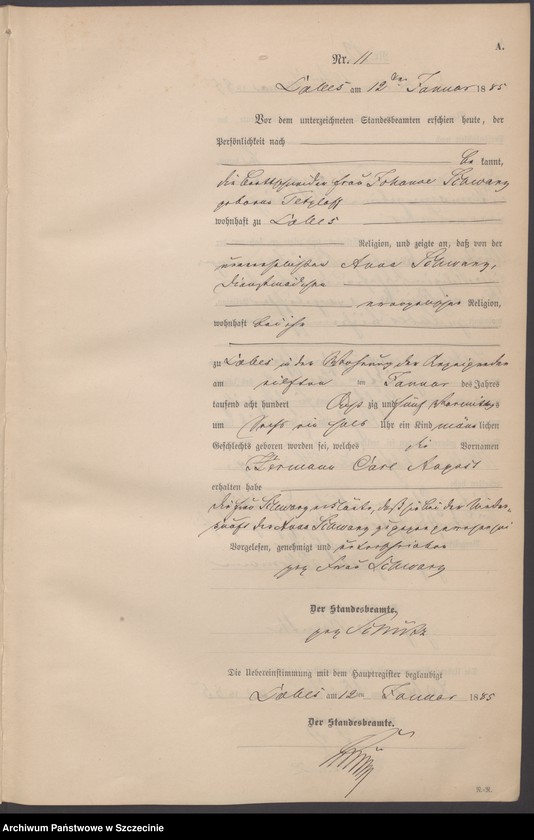 A.
Nr. 11
Labes am 12ten Januar 1885
Vor dem unterzeichneten Standesbeamten erschien heute, der
Persönlichkeit nach
be kannt,
die Brettschneider frau Johanne Schwarz
geborene Tetzlaff
wohnhaft zu Labes
Religion, und zeigte an, daß von der
unverehelichten Anna Schwarz,
Dienstmädchen
evangelischer Religion,
wohnhaft bei ihr
zu Labes in der Wohnung der Anzeigenden
am eilften ten Januar des Jahres
tausend acht hundert Acht zig und fünf Vormittags
um sechs ein halb Uhr ein Kind männ lichen
Geschlechts geboren worden sei, welches die Vornamen
Hermann Carl August
erhalten habe
die Frau Schwarz erklärte, daß sie bei der Nieder-
kunft der Anna Schwarz zugegen gewesen sei
Vorgelesen, genehmigt und unterschrieben
gez Frau Schwarz
Der Standesbeamte.
gez Schütz
Die Uebereinstimmung mit dem Hauptregister beglaubigt
Labes am 12ten Januar 1885
Der Standesbeamte.
Schütz
Archiwum Państwowe w Szczecinie